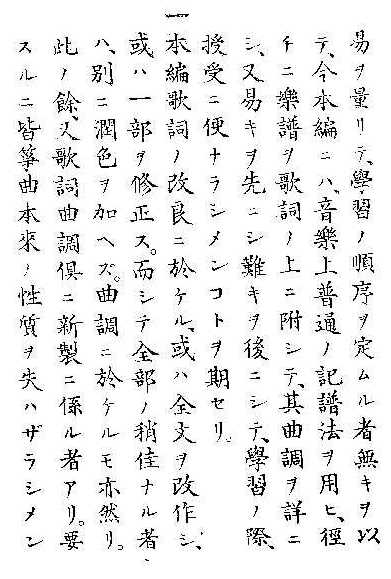 二
易ヲ量リテ、學習ノ順序ヲ定ムル者無キヲ以
テ、今本編ニハ、音樂上普通ノ記譜法ヲ用ヒ、徑
チニ樂譜ヲ歌詞ノ上ニ附シテ、其曲調ヲ詳ニ
シ、又易キヲ先ニシ難キヲ後ニシテ、學習ノ際、
授受ニ便ナラシメンコトヲ期セリ。
本編歌詞ノ改良ニ於ケル、或ハ全文ヲ改作シ、
或ハ一部ヲ修正ス。而シテ全部ノ稍佳ナル者
ハ、別ニ潤色ヲ加ヘズ。曲調ニ於ケルモ亦然リ。
此ノ餘、又歌詞曲調俱ニ新製ニ係ル者アリ。要
スルニ皆箏曲本來ノ性質ヲ失ハザラシメン